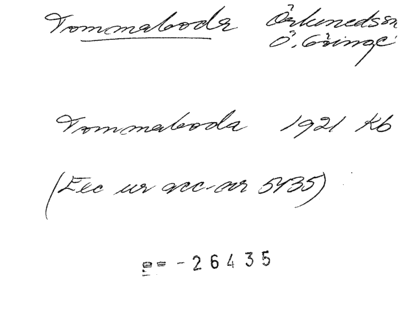 Tommaboda Örkeneds sn
Ö. Göinge
Tommaboda 1921 Kb
(Exc ur acc-nr 5435)
-26435